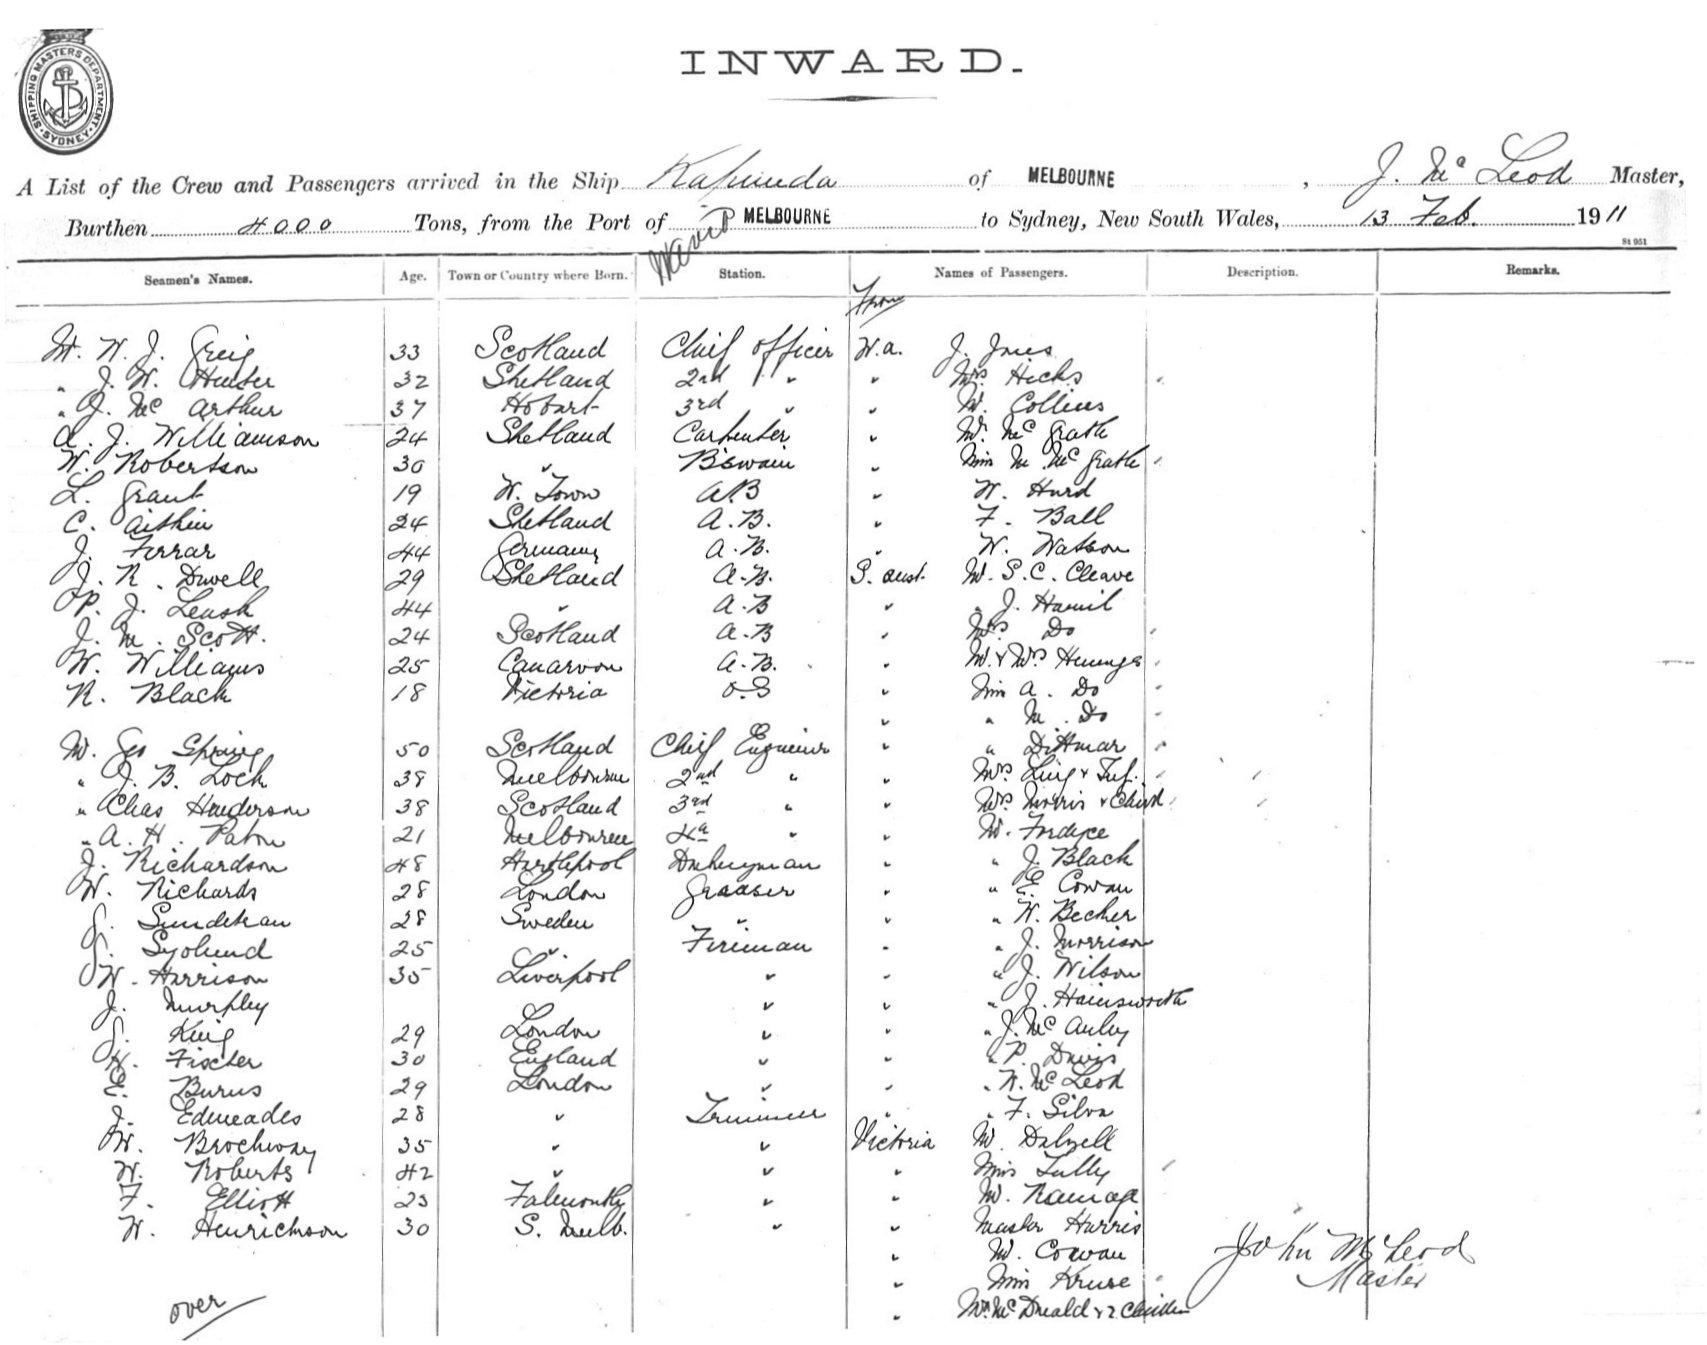 SHIPPING MASTERS DEPARTMENT. SYDNEY.
INWARD.
A List of the Crew and Passengers arrived in the Ship Kapunda of MELBOURNE, J. McLeod Master,
Burthen 4000 Tons, from the Port of MELBOURNE to Sydney, New South Wales, 13 Feb. 1911
St 951
Seamen's Names. Age. Town or Country where Born. Station. Names of Passengers. Description. Remarks.
From
W. J. Greig 33 Scotland Chief Officer W.a. J. Jones
" J. W. Hunter 32 Shetland 2nd " " Mrs Hicks
" J. Mc Arthur 37 Hobart 3rd " " Mr. Collins
A. J. Williamson 24 Shetland Carpenter " Mr. McGrath
W. Robertson 30 " B'swain " Miss M. McGrath
L. Grant 19 W. Town A.B " W. Hurd
C. Aitkin 24 Shetland A.B. " F. Ball
J. Ferrar 44 Germany A.B. " W. Watson
J. R. Duvell 29 Shetland A.B. S. Aust. Mr. S.C. Cleave
P. J. Leask 44 " A.B " " J. Hamil
J. M. Scott. 24 Scotland A.B " Mrs Do
W. Williams 25 Canarvon A.B. " Mr. & Mrs
R. Black 18 Victoria O.S " Miss A. Do
" " M. Do
Mr. Geo Spring 50 Scotland Chief Engineer " " Dittmar
" J. B. Lock 38 Melbourne 2nd " " Mrs Ling & Inf.
" Chas Henderson 38 Scotland 3rd " " Mrs Morris & Child
" A. H. Paton 21 Melbourne 4th " " Mr. Fordyce
J. Richardson 48 Hartlepool Donkeyman " " J. Black
W. Richards 28 London Greaser " " E. Cowan
28 Sweden " " " W. Becher
25 " Fireman " " J. Morrison
W. Harrison 35 Liverpool " " " J. Wilson
J. Murphy " " " J. Hainsworth
King 29 London " " " J. McAuley
H. Fischer 30 England " " " P. Davis
E. Burns 29 London " " " McLeod
J. Edmeades 28 " Trimmer " " F. Silva
W. Brockway 35 " " Victoria Mr. Dalzell
W. Roberts 42 " " " Miss Tully
F. Elliott 23 Falmouth " " Mr. Ramage
W. Henrichson 30 S. Melb. " " Master Harris
" Mr. Cowan
" Miss Kruse
" Mrs McDonald & 2 Children
John McLeod
Master
over